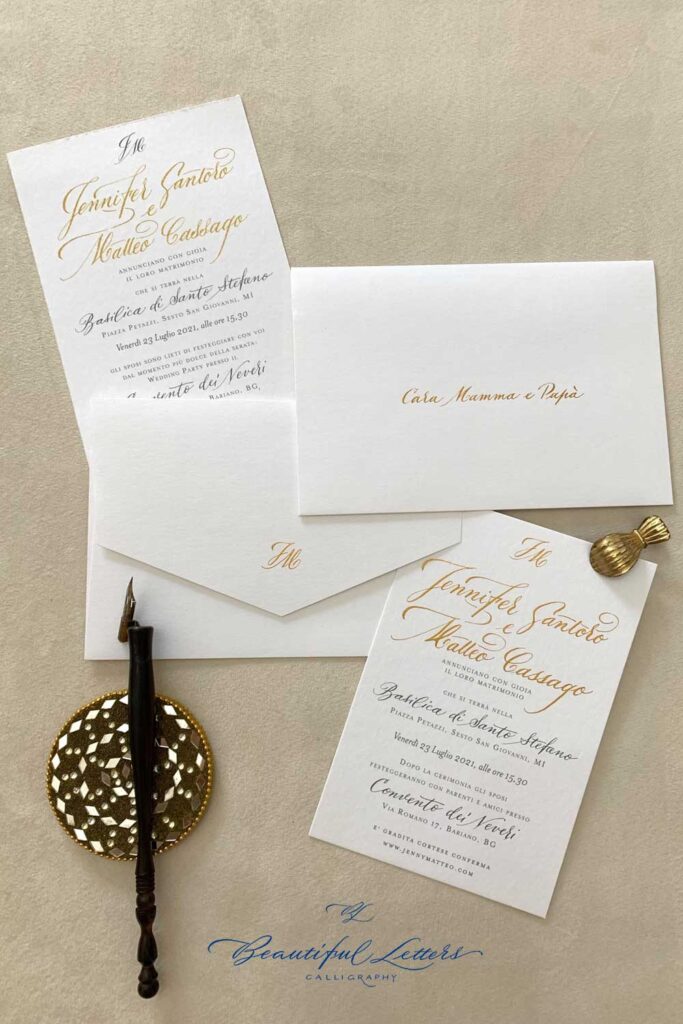 JM
Jennifer Santoro
e
Matteo Cassago
ANNUNCIANO CON GIOIA
IL LORO MATRIMONIO
CHE SI TERRÀ NELLA
Basilica di Santo Stefano
PIAZZA PETAZZI, SESTO SAN GIOVANNI, MI
Venerdì 23 Luglio 2021, alle ore 15,30
GLI SPOSI SONO LIETI DI FESTEGGIARE CON VOI
DAL MOMENTO PIÙ DOLCE DELLA SERATA:
WEDDING PARTY PRESSO IL
Convento dei Neveri
BARIANO, BG
Cara Mamma e Papà
JM
JM
Jennifer Santoro
e
Matteo Cassago
ANNUNCIANO CON GIOIA
IL LORO MATRIMONIO
CHE SI TERRÀ NELLA
Basilica di Santo Stefano
PIAZZA PETAZZI, SESTO SAN GIOVANNI, MI
Venerdì 23 Luglio 2021, alle ore 15,30
DOPO LA CERIMONIA GLI SPOSI
FESTEGGERANNO CON PARENTI E AMICI PRESSO
Convento dei Neveri
VIA ROMANO 17, BARIANO, BG
E' GRADITA CORTESE CONFERMA
WWW.JENNYMATTEO.COM
BL
Beautiful Letters
CALLIGRAPHY